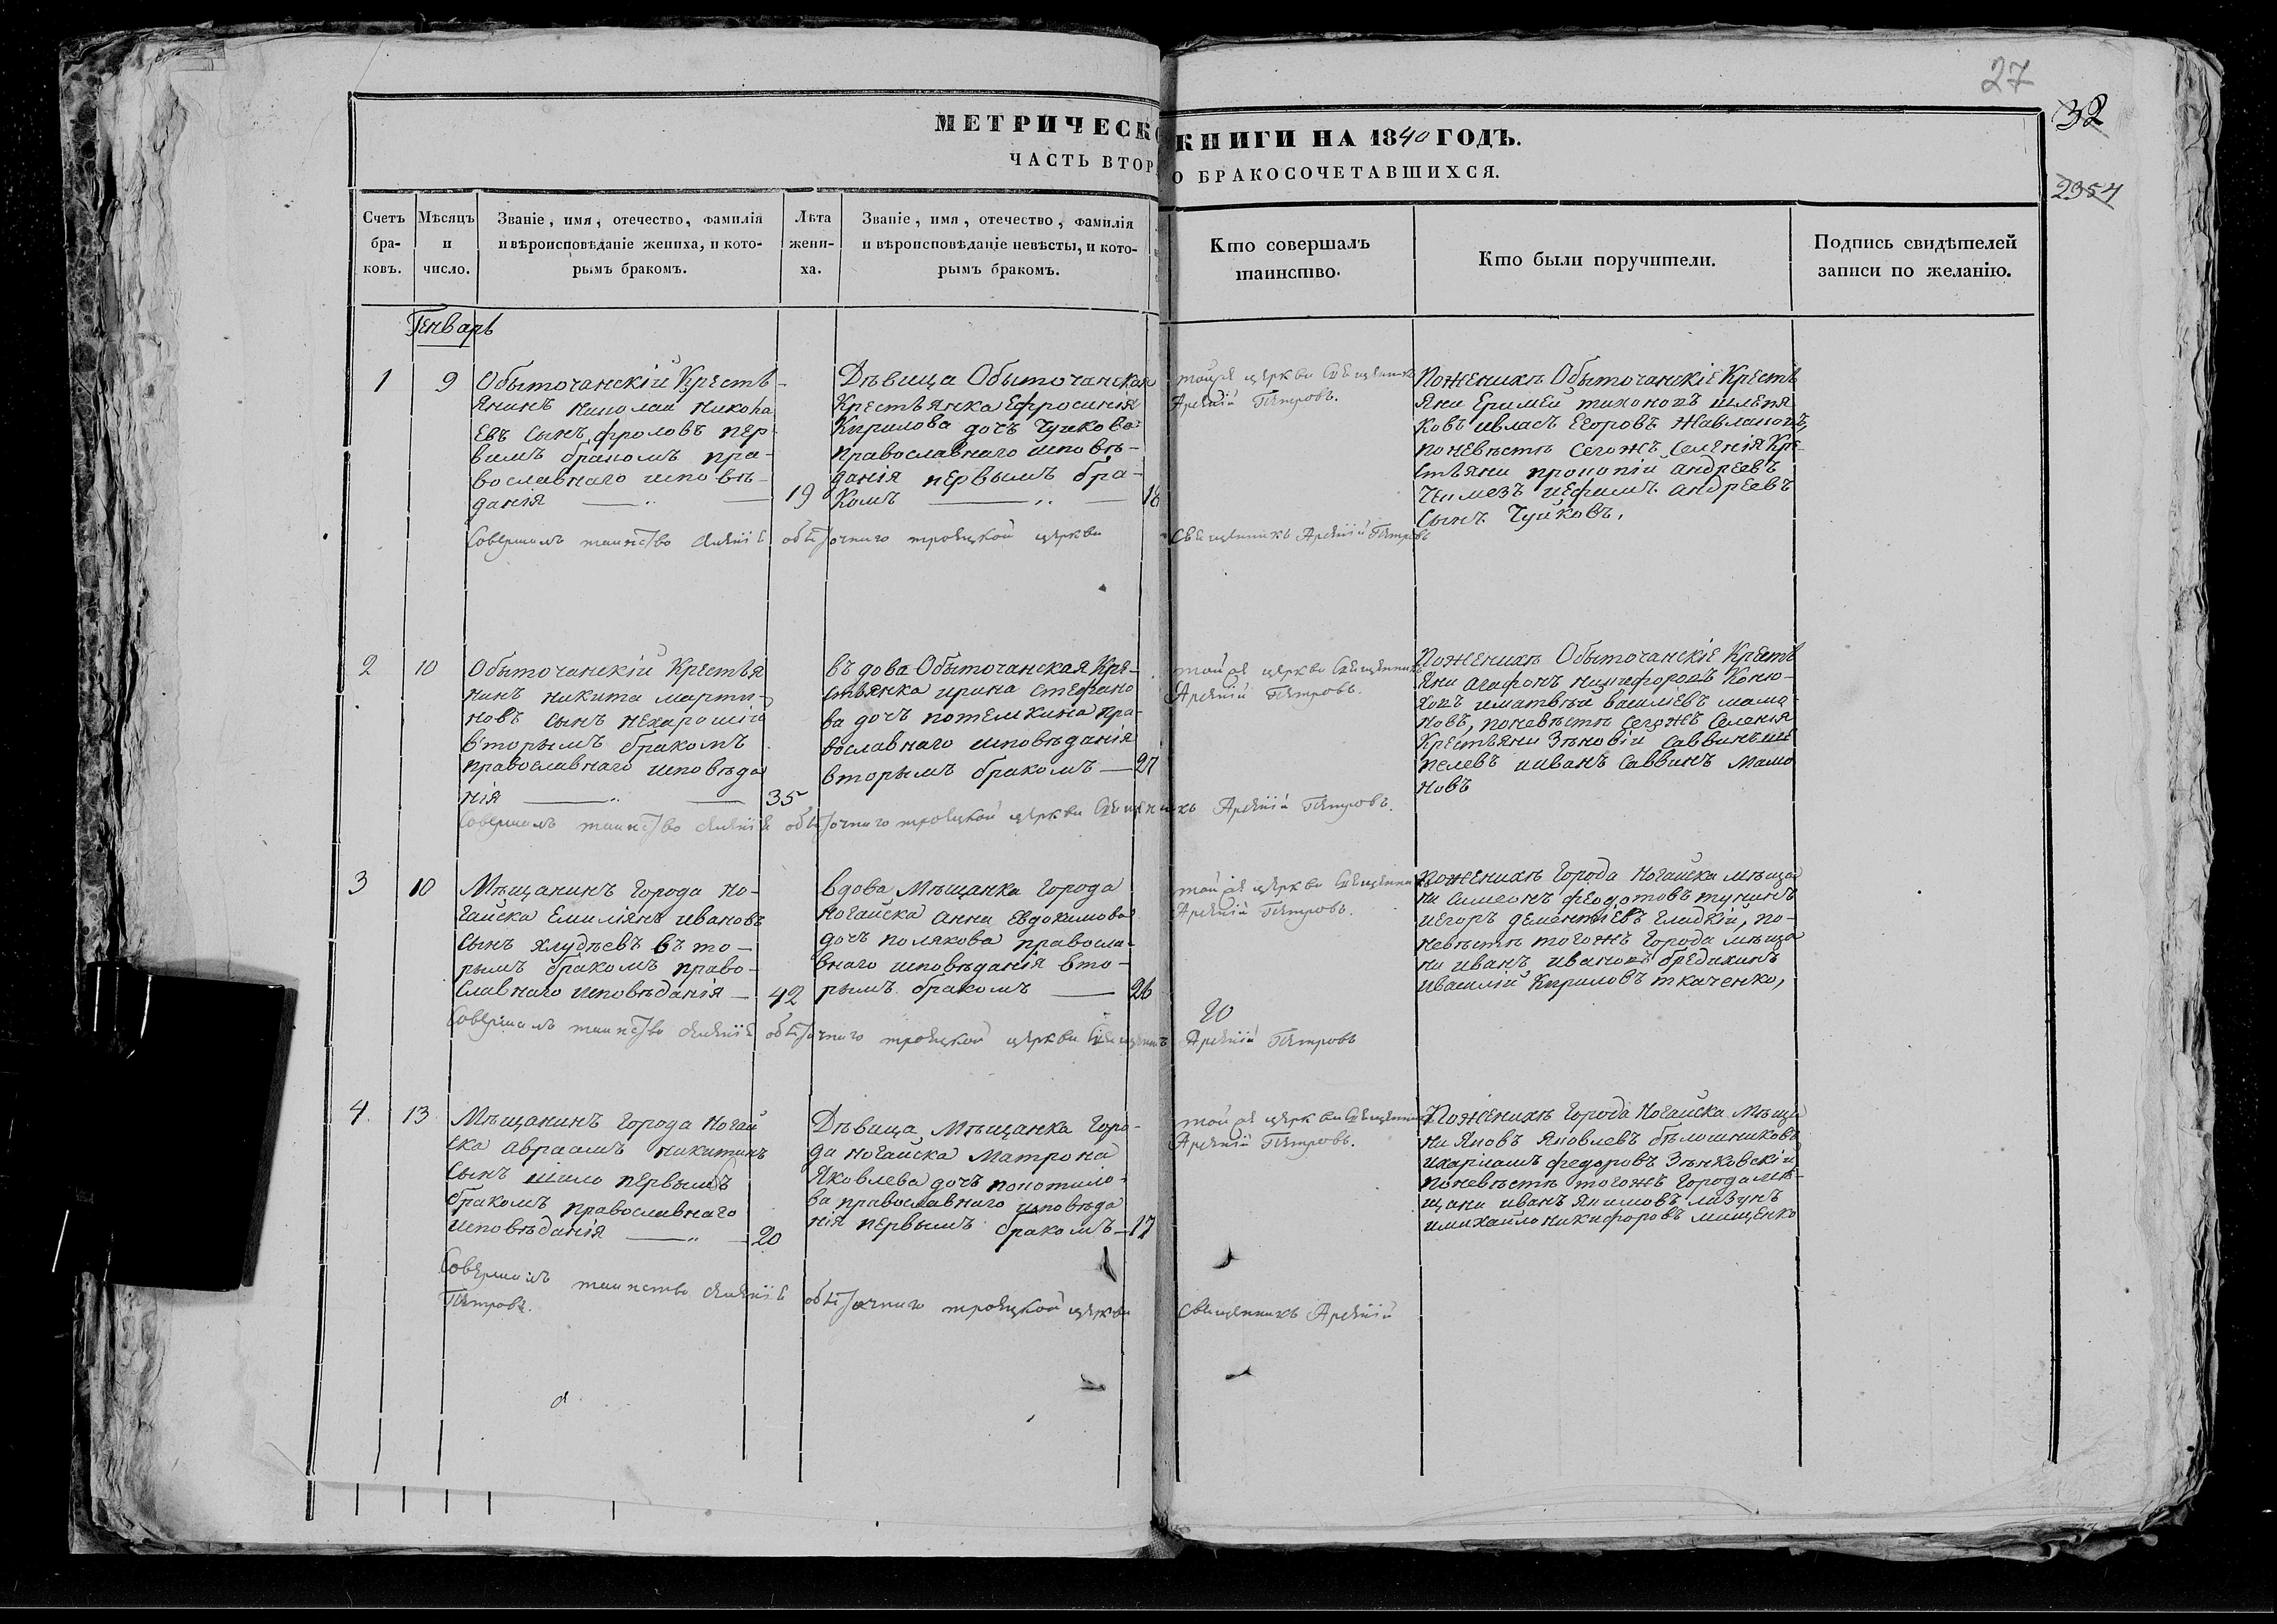 27
32
2354
МЕТРИЧЕСКО КНИГИ НА 1840 ГОДЪ.
ЧАСТЬ ВТОР О БРАКОСОЧЕТАВШИХСЯ.
Счетъ бра-ковъ.
Мѣсяцъ и число.
Званіе, имя, отечество, фамилія
и вѣроисповѣданіе жениха, и кото-
рымъ бракомъ.
Лѣта жени-ха.
Званіе, имя, отечество, фамилія
и вѣроисповѣданіе невѣсты, и кото-
рымъ бракомъ.
Кто совершалъ
таинство.
Кто были поручители.
Подпись свидѣтелей
записи по желанію.
Генварь
1
9
Обыточанскій Кресть-
янинъ николай никола
евъ сынъ фроловъ пер-
вымъ бракомъ пра-
вославнаго исповѣ-
данія
19
Дѣвица Обыточанская
Крестьянка Ефросинія
Кирилова дочъ Чуйкова
православнаго исповѣ-
данія первымъ бра-
комъ
18
тойже церкви Священникъ
Арсеній Петровъ.
Поженихѣ Обыточанскіе Кресть
яни Еримей тихоновъ
ковъ ивласъ Егоровъ
поневѣстѣ Сегожъ Селенія Кре-
стьяни прокопій андреевъ
иефимъ андреевъ
сынъ Чуйковъ,
Совершилъ таинство селенія обыточнаго троецкой церкви Священникъ Арсеній Петровъ
2
10
Обыточанскій Крестья
нинъ никита марти-
новъ сынъ нехарошій
вторымъ бракомъ
православнаго исповѣда
нія
35
въдова Обыточанская Кре-
стьянка ирина стефано
ва дочъ потемкина пра-
вославнаго исповѣданія
вторымъ бракомъ
27
тойже церкви Священникъ
Арсеній Петровъ.
Поженихѣ Обыточанскіе Кресть
яни агафонъ никифоровъ Коню-
ховъ иматвѣй василіевъ мама-
новъ, поневѣстѣ сегожъ селенія
Крестьяни Зѣновій саввинъ
пелевъ ииванъ саввинъ мамо
новъ
Совершилъ таинство селенія обыточнаго троецкой церкви Священникъ Арсеній Петровъ.
3
10
Мѣщанинъ города но-
гайска Емиліянъ ивановъ
сынъ хлудѣевъ въто-
рымъ бракомъ право-
славнаго исповѣданія
42
вдова Мѣщанка города
ногайска анна Евдокимова
дочъ полякова правосла-
внаго исповѣданія вто-
рымъ бракомъ
26
тойже церкви Священникъ
Арсеній Петровъ.
20
Поженихѣ города ногайска мѣща
ни симеонъ феодотовъ тунинъ
иегоръ дементіевъ гладкій, по-
невѣстѣ тогожъ города мѣща
ни иванъ ивановъ бредихинъ
ивасилій Кириловъ ткаченко,
Совершилъ таинство селенія обыточнаго троецкой церкви Священникъ Арсеній Петровъ
4
13
Мѣщанинъ города ногай
ска авраамъ никитинъ
сынъ шило первымъ
бракомъ православнаго
исповѣданія
20
Дѣвица Мѣщанка горо-
да ногайска Матрона
Яковлева дочъ
ва православнаго исповѣда
нія первымъ бракомъ
17
тойже церкви Священникъ
Арсеній Петровъ.
Поженихѣ города ногайска Мѣща
ни Яковъ Яковлевъ бѣлошниковъ
ихарламъ федоровъ Зѣнковскій
поневѣстѣ тогожъ города мѣ-
щани иванъ Якимовъ лизунъ
имихайло никифоровъ мищенко
Совершилъ таинство селенія обыточнаго троецкой церкви Священникъ Арсеній
Петровъ.